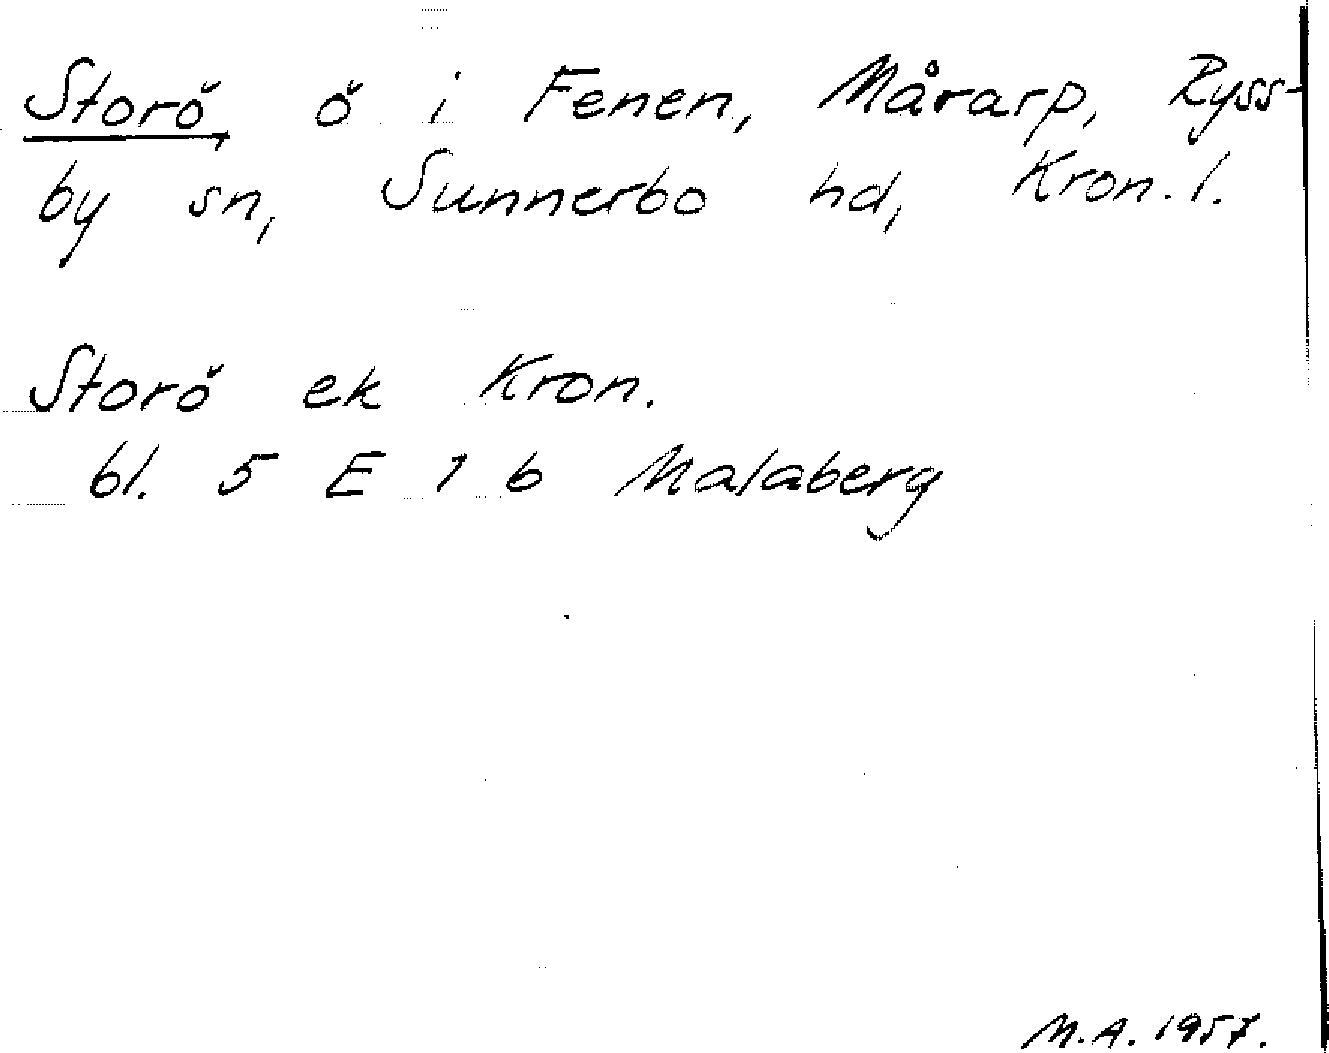 Storö, ö i Fenen, Mårarp, Ryss-
by sn, Sunnerbo hd, Kron. l.
Storö ek Kron.
bl. 5 E 1 b Malaberg
M.A. 1957.